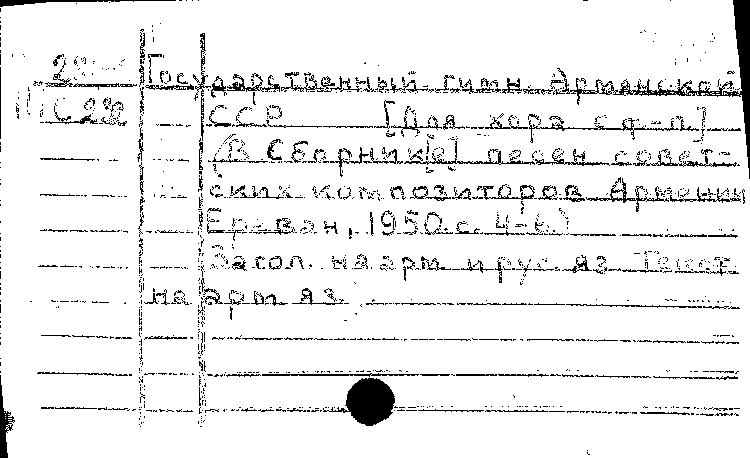 Государственный гимн Армянской
С 232 ССР [Для хора с ф-п.]
(В Сборник[е] песен совет-
ских композиторов Армении
Ереван, 1950. с. 4-6.)
Загол. на арм. и рус. яз. Текст
на арм. яз.